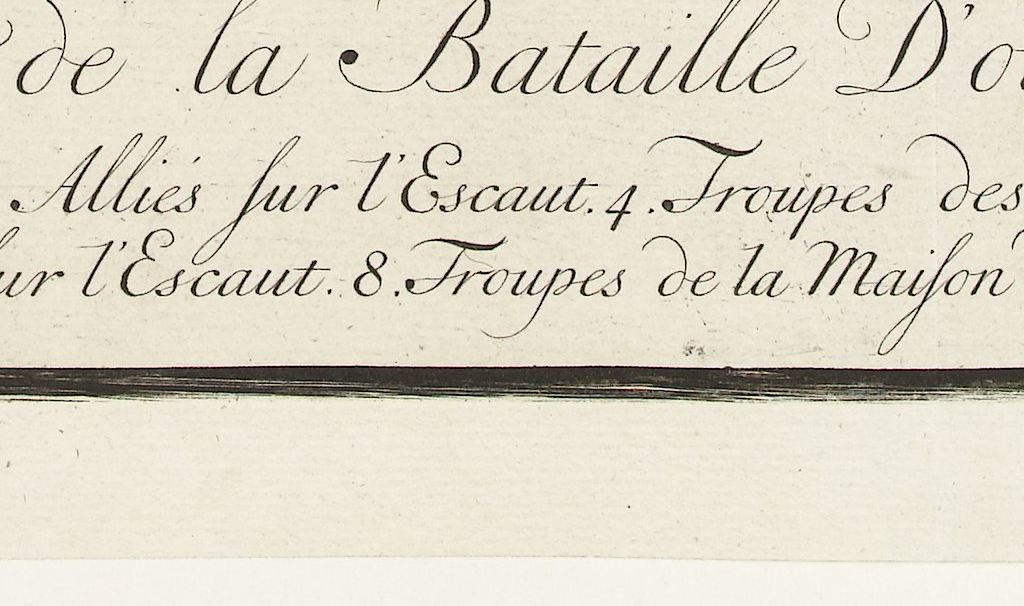 de la Bataille D'o
Alliés ſur l'Escaut. 4. Troupes des
ur l'Escaut. 8. Troupes de la Maiſon